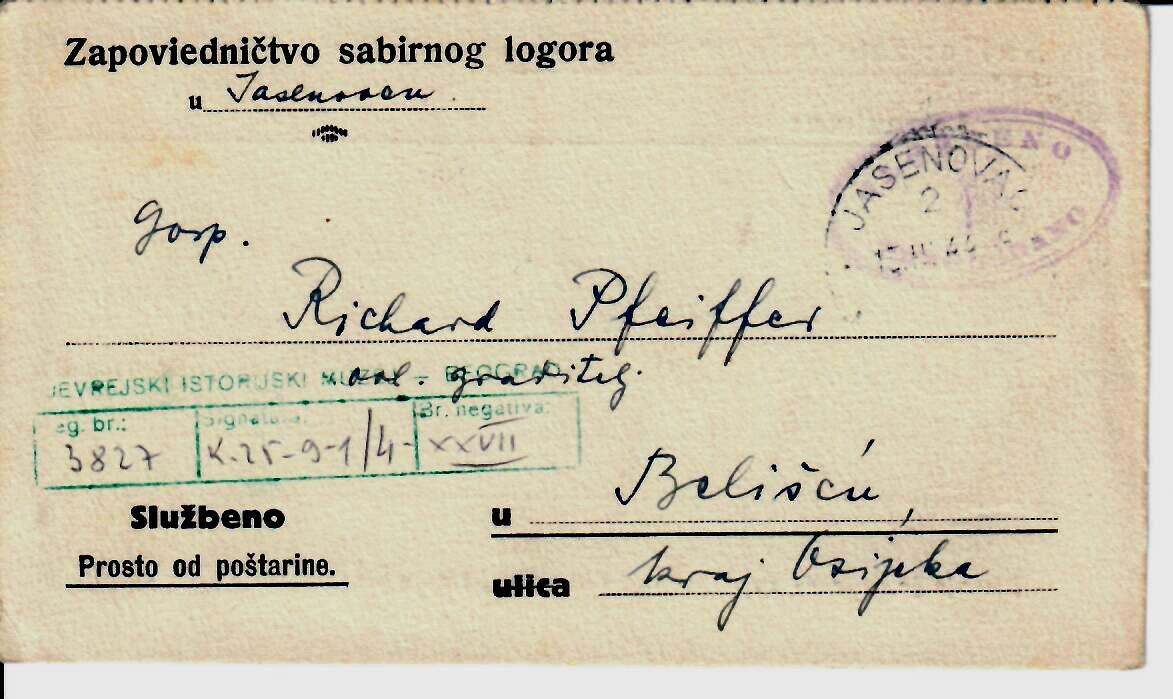 Zapoviedničtvo sabirnog logora
u Jasenovcu.
JASENOVAC
2
44
Gosp.
Richard Pfeiffer
ovl. graditelj.
JEVREJSKI ISTORIJSKI MUZEJ – BEOGRAD
eg. br.:
Signatura:
Br. negativa:
3827
K.25-9-1/4-
XXVII
Službeno
Prosto od poštarine.
u Belišću,
ulica kraj Osijeka